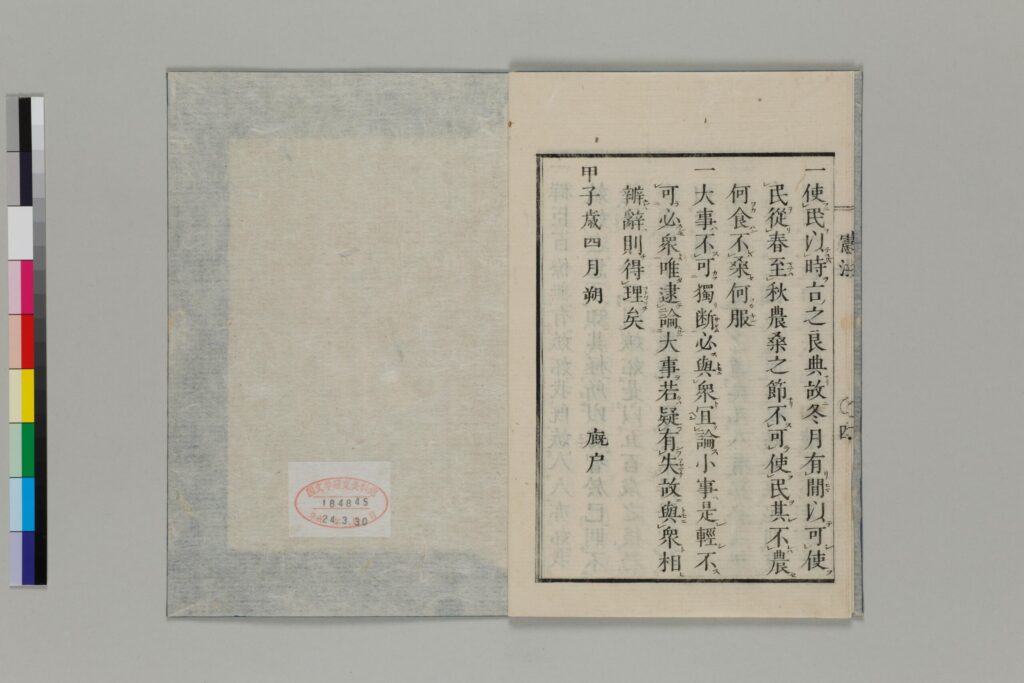 一使民以時古之良典故冬月有間以可使
民從春至秋農桑之節不可使民其不農
何食不桑何服
一大事不可獨断必與衆宜論小事是輕不
可必衆唯逮論大事若疑有失故與衆相
辨辭則得理矣
甲子歳四月朔 廐户
憲法
四
184845
24.3.30